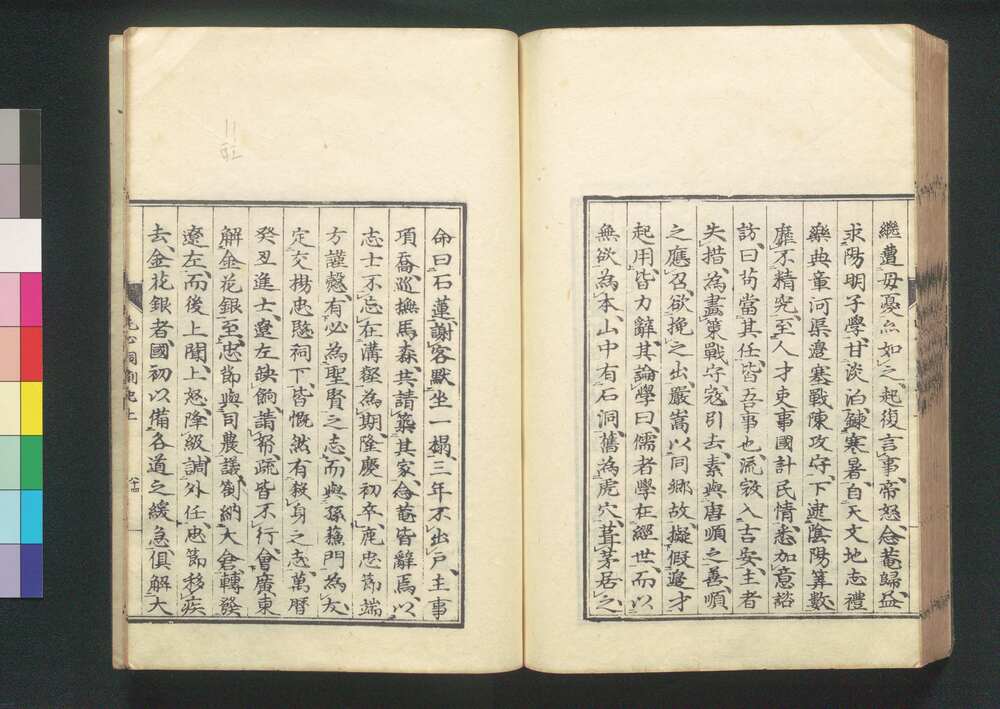 繼遭毋憂亦如之起復言事、帝怒念菴歸益
求陽明子學、甘淡泊、鍊寒暑、自天文地志禮
樂典章河渠邊塞戰陳攻守、下逮陰陽算數
靡不精究、至人才吏事國計民情、悉加意諮
訪、曰苟當其任、皆吾事也、流寇入吉安、主者
失措、為畫策戰守、寇引去、素與唐順之善、順
之應召、欲挽之出、嚴嵩以同鄉故、擬假邊才
起用、皆力辭、其論學曰、儒者學在經世、而以
無欲為本、山中有石洞、舊為虎穴、葺茅居之、
命曰石蓮、謝客默坐一榻、三年不出戶、主事
項喬、巡撫馬森、共請築其家、念菴皆辭焉、以
志士不忘在溝壑為期、隆慶初卒、鹿忠節端
方謹愨、有必為聖賢之志、而與孫蘇門為友、
定交楊忠愍祠下、皆慨然有殺身之志、萬曆
癸丑進士、遼左缺餉、請帑疏皆不行、會廣東
解金花銀至、忠節與司農議劄納大倉、轉發
遼左、而後上聞、上怒、降級調外任、忠節移疾
去、金花銀者、國初以備各道之緩急、俱解大
洗心洞劄記上